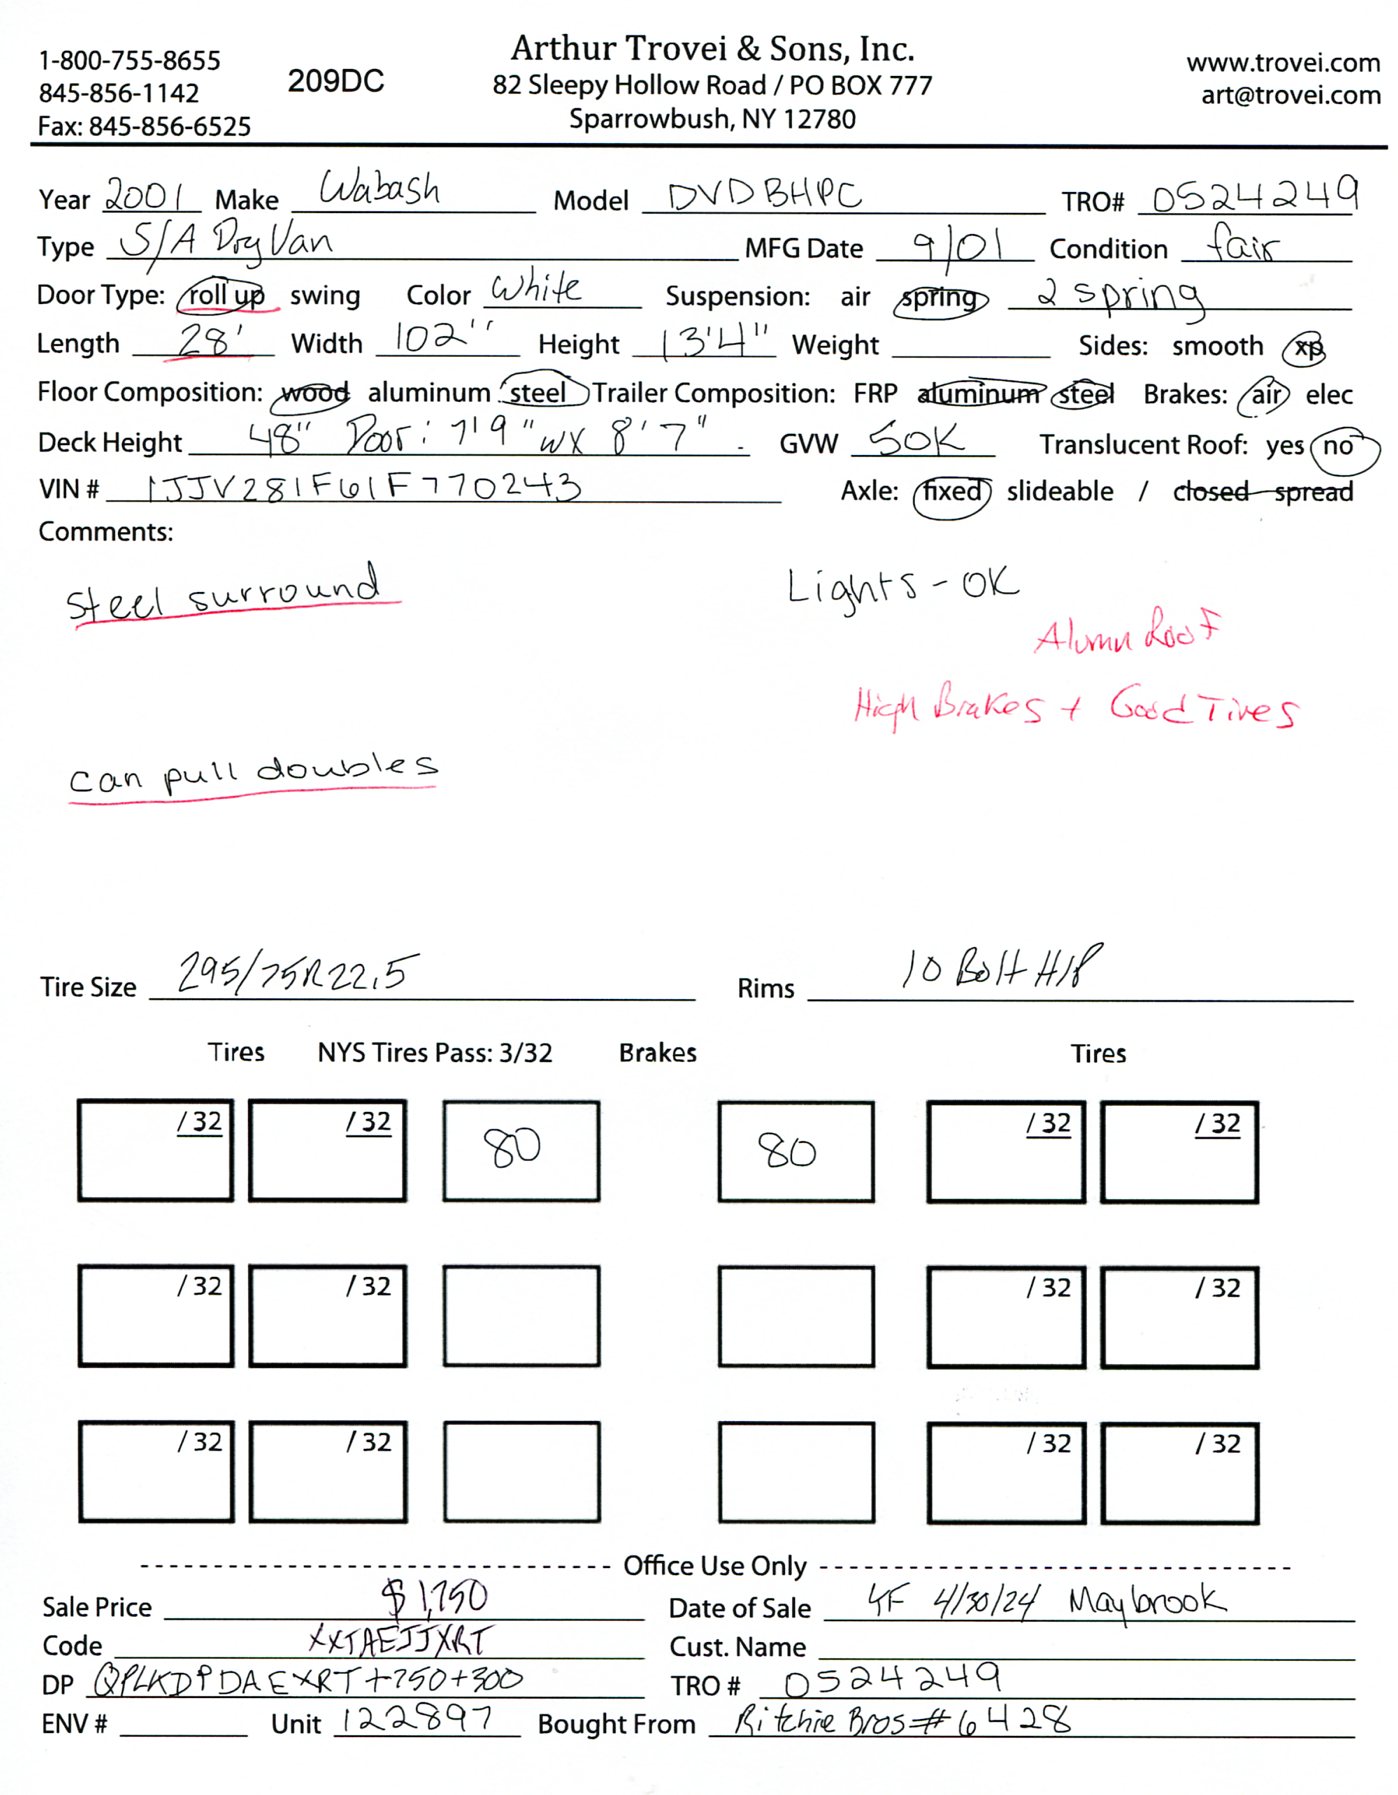 Arthur Trovei & Sons, Inc.
1-800-755-8655
845-856-1142
Fax: 845-856-6525
209DC
82 Sleepy Hollow Road / PO BOX 777
Sparrowbush, NY 12780
www.trovei.com
art@trovei.com
Year 2001 Make Wabash Model DVDBHPC TRO# 0524249
Type S/A Dry Van MFG Date 9/01 Condition fair
Door Type: roll up swing Color White Suspension: air spring 2 spring
Length 28' Width 102" Height 13'4" Weight Sides: smooth xp
Floor Composition: wood aluminum steel Trailer Composition: FRP aluminum steel Brakes: air elec
Deck Height 48" Door: 7'9"w x 8'7" GVW 50K Translucent Roof: yes no
VIN # 1JJV281F61F770243 Axle: fixed slideable / closed spread
Comments:
steel surround
Lights - OK
Alumn Roof
High Brakes + Good Tires
can pull doubles
Tire Size 295/75R22.5 Rims 10 Bolt H/P
Tires NYS Tires Pass: 3/32 Brakes Tires
/ 32 / 32 80 80 / 32 / 32
/ 32 / 32 / 32 / 32
/ 32 / 32 / 32 / 32
Office Use Only
Sale Price $1,750 Date of Sale 4/30/24 Maybrook
Code XXTAEJJXRT Cust. Name
DP QPLKDPDAEXRT+750+300 TRO # 0524249
ENV # Unit 122897 Bought From Ritchie Bros #6428